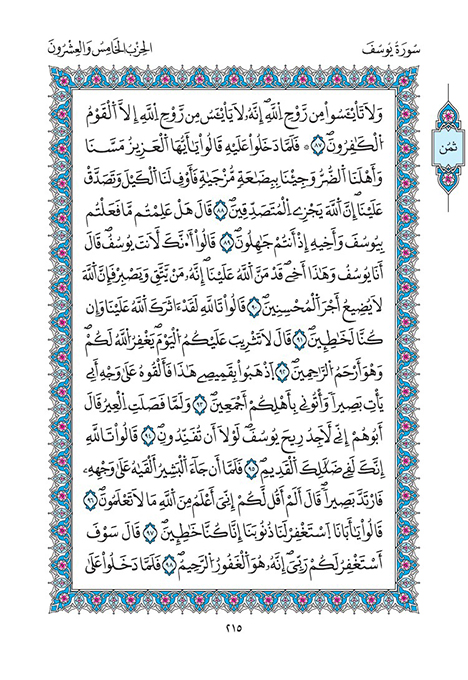 سُورَةُ يُوسُفَ
الحِزْبُ الخَامِسُ وَالعِشْرُونَ
ثُمُن
وَلَا تَاْيْـَٔسُواْ مِن رَّوْحِ اِ۬للَّهِۖ إِنَّهُۥ لَا يَاْيْـَٔسُ مِن رَّوْحِ اِ۬للَّهِ إِلَّا اَ۬لْقَوْمُ
اُ۬لْكَٰفِرُونَۖ ٨٧ ۞ فَلَمَّا دَخَلُواْ عَلَيْهِ قَالُواْ يَٰٓأَيُّهَا اَ۬لْعَزِيزُ مَسَّنَا
وَأَهْلَنَا اَ۬لضُّرُّ وَجِئْنَا بِبِضَٰعَةٖ مُّزْجَيٰةٖ فَأَوْفِ لَنَا اَ۬لْكَيْلَ وَتَصَدَّقْ
عَلَيْنَآۖ إِنَّ اَ۬للَّهَ يَجْزِے اِ۬لْمُتَصَدِّقِينَۖ ٨٨ قَالَ هَلْ عَلِمْتُم مَّا فَعَلْتُم
بِيُوسُفَ وَأَخِيهِ إِذَ اَنتُمْ جَٰهِلُونَۖ ٨٩ قَالُوٓاْ أَٰ۟نَّكَ لَأَنتَ يُوسُفُۖ قَالَ
أَنَا يُوسُفُ وَهَٰذَآ أَخِے قَدْ مَنَّ اَ۬للَّهُ عَلَيْنَآۖ إِنَّهُۥ مَنْ يَّتَّقِ وَيَصْبِرْ فَإِنَّ اَ۬للَّهَ
لَا يُضِيعُ أَجْرَ اَ۬لْمُحْسِنِينَۖ ٩٠ قَالُواْ تَاللَّهِ لَقَدَ اٰثَرَكَ اَ۬للَّهُ عَلَيْنَا وَإِن
كُنَّا لَخَٰطِـِٕينَۖ ٩١ قَالَ لَا تَثْرِيبَ عَلَيْكُمُ اُ۬لْيَوْمَۖ يَغْفِرُ اُ۬للَّهُ لَكُمْ
وَهُوَ أَرْحَمُ اُ۬لرَّٰحِمِينَۖ ٩٢ اَ۪ذْهَبُواْ بِقَمِيصِے هَٰذَا فَأَلْقُوهُ عَلَيٰ وَجْهِ أَبِے
يَاتِ بَصِيراٗ وَاتُونِے بِأَهْلِكُمُۥٓ أَجْمَعِينَۖ ٩٣ وَلَمَّا فَصَلَتِ اِ۬لْعِيرُ قَالَ
أَبُوهُمُۥٓ إِنِّے لَأَجِدُ رِيحَ يُوسُفَۖ لَوْلَآ أَن تُفَنِّدُونِۖ ٩٤ قَالُواْ تَاللَّهِ
إِنَّكَ لَفِے ضَلَٰلِكَ اَ۬لْقَدِيمِۖ ٩٥ فَلَمَّآ أَن جَآءَ اَ۬لْبَشِيرُ أَلْقَيٰهُ عَلَيٰ وَجْهِهِۦ
فَارْتَدَّ بَصِيراٗۖ قَالَ أَلَمَ اَقُل لَّكُمُۥٓ إِنِّيَ أَعْلَمُ مِنَ اَ۬للَّهِ مَا لَا تَعْلَمُونَۖ ٩٦
قَالُواْ يَٰٓأَبَانَا اَ۪سْتَغْفِرْ لَنَا ذُنُوبَنَآ إِنَّا كُنَّا خَٰطِـِٕينَۖ ٩٧ قَالَ سَوْفَ
أَسْتَغْفِرُ لَكُمْ رَبِّيَۖ إِنَّهُۥ هُوَ اَ۬لْغَفُورُ اُ۬لرَّحِيمُۖ ٩٨ فَلَمَّا دَخَلُواْ عَلَيٰ
٢١٥